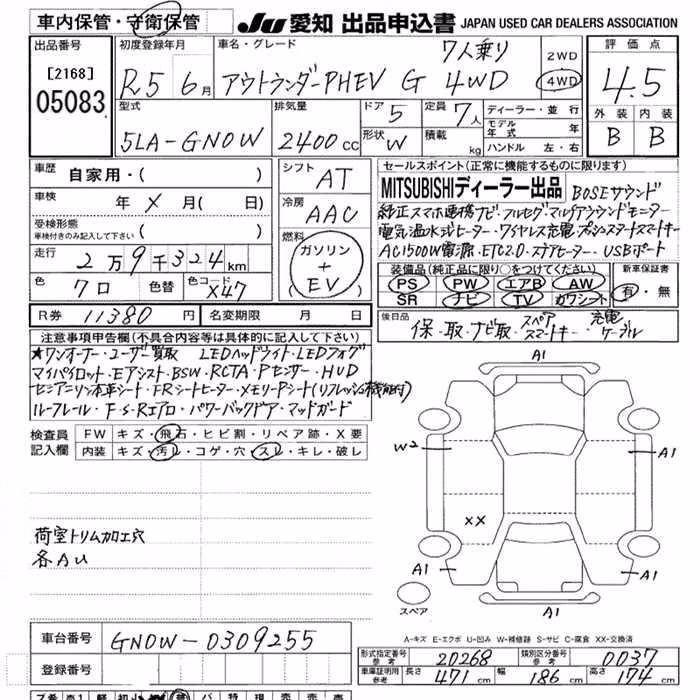 車内保管・守衛保管
JU 愛知 出品申込書 JAPAN USED CAR DEALERS ASSOCIATION
出品番号
[2168]
05083
初度登録年月
R5 6月
車名・グレード
7人乗り
アウトランダーPHEV G 4WD
2WD
4WD
評価点
4.5
外装 内装
B B
型式
5LA-GN0W
排気量
2400cc
ドア 5
形状 W
定員 7人
積載 kg
ディーラー・並行
モデル年式 年
ハンドル 左・右
車歴 自家用・( )
車検 年 X 月( 日)
受検形態
車検付きのみ記入して下さい ( )
走行 2万9千324km
色 クロ 色替 色コード X47
R券 11380円 名変期限 月 日
シフト AT
冷房 AAC
燃料
ガソリン
+
(EV)
セールスポイント(正常に機能するものに限ります)
MITSUBISHIディーラー出品 BOSEサウンド
純正スマホ連携ナビ・フルセグ・マルチアラウンドモニター
電気温水式ヒーター・ワイヤレス充電・プッシュスタートスマートキー
AC1500W電源・ETC2.0・ステアヒーター・USBポート
装備品(純正品に限り○をつけてください)
PS PW エアB AW
SR ナビ TV カワシート
新車保証書
有・無
後日品
保・取・ナビ取・スペアスマートキー・充電ケーブル
注意事項申告欄(不具合内容等は具体的に記入して下さい)
★ワンオーナー・ユーザー買取 LEDヘッドライト・LEDフォグ
マイパイロット・Eアシスト・BSW・RCTA・Pセンサー・HUD
セミアニリン本革シート・FRシートヒーター・メモリーPシート(リフレッシュ機能付)
ルーフレール・F・S・Rエアロ・パワーバックドア・マッドガード
検査員記入欄
FW キズ・飛石・ヒビ割・リペア跡・X要
内装 キズ・汚レ・コゲ・穴・スレ・キレ・破レ
荷室トリム加工穴
各AU
A1
W2
A1
XX
A1
A1
A1
スペア
A-キズ E-エクボ U-凹み W-補修跡 S-サビ C-腐食 XX-交換済
車台番号 GN0W-0309255
登録番号
形式指定番号 参考 20268
類別区分番号 参考 0037
車庫証明用 参考 長さ 471cm 幅 186cm 高さ 174cm